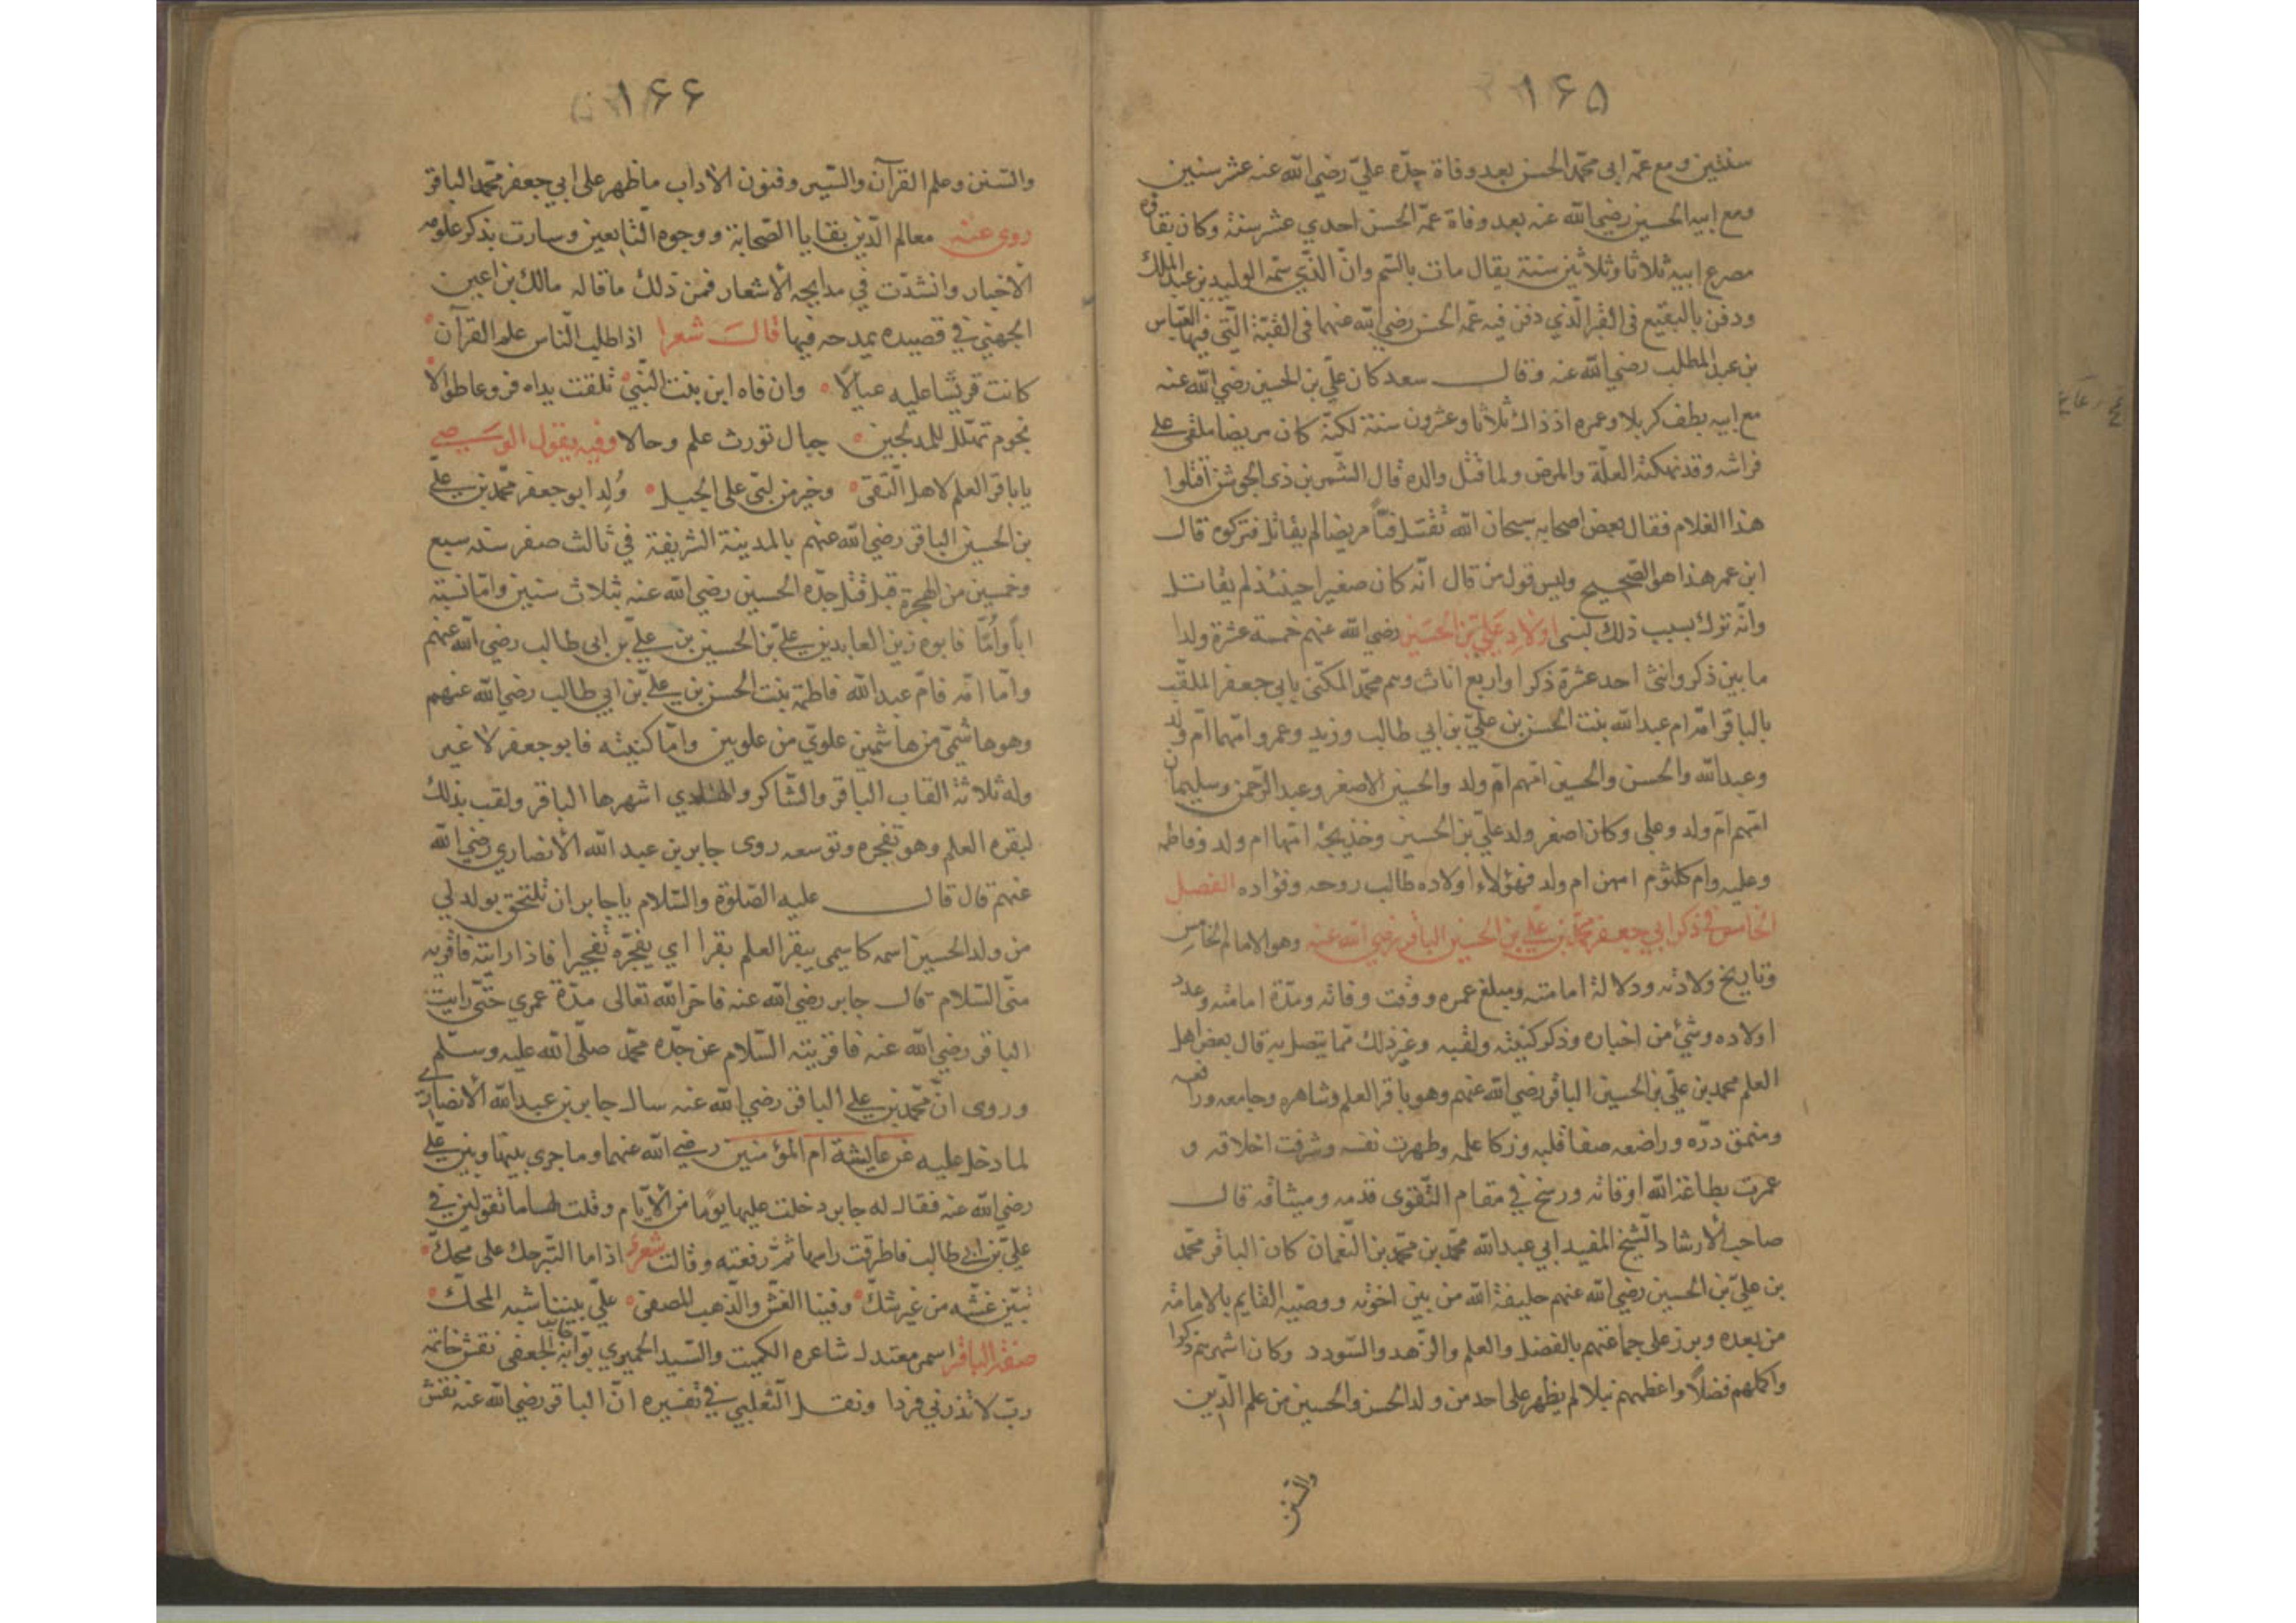 ١٦٥
سنتين ومع عمّه ابى محمّد الحسن بعد وفاة جدّه عليّ رضي الله عنه عشر سنين
ومع ابيه الحسين رضي الله عنه بعد وفاة عمّه الحسن احدي عشر سنة وكان بقاؤه
مصرع ابيه ثلاثا وثلاثين سنة يقال مات بالسّم وانّ الذّي سمّه الوليد بن عبد الملك
ودفن بالبقيع فى القبر الّذي دفن فيه عمّه الحسن رضي الله عنهما فى القبّة الّتي فيها العبّاس
بن عبد المطلب رضي الله عنه وقال سعد كان عليّ بن الحسين رضي الله عنه
مع ابيه بطف كربلا وعمره اذ ذاك ثلاثا وعشرون سنة لكنّه كان مريضا ملقى على
فراشه وقد نهكته العلّة والمرض ولما قتل والده قال الشّمر بن ذى الجوشن اقتلوا
هذا الغلام فقال بعض اصحابه سبحان الله تقتل فتًا مريضا لم يقاتل فتركوه قال
ابن عمر هذا هو الصّحيح وليس قول من قال انّه كان صغيرا حينئذ لم يقاتل
وانّه ترك بسبب ذلك لبنى اولاد عليّ بن الحسين رضي الله عنهم خمسة عشرة ولدا
ما بين ذكر وانثى احد عشرة ذكرا واربع اناث وهم محمّد المكنّى بابي جعفر الملقّب
بالباقر امّه ام عبد الله بنت الحسن بن عليّ بن ابي طالب وزيد وعمرو امّهما امّ ولد
وعبد الله والحسن والحسين امّهم امّ ولد والحسين الاصغر وعبد الرّحمن وسليمان
امّهم امّ ولد وعلى وكان اصغر ولد عليّ بن الحسين وخديجة امّها ام ولد وفاطمه
وعليه وام كلثوم امهن ام ولد فهؤلاء اولاده طالب روحه وفؤاده الفصل
الخامس فى ذكر ابي جعفر محمّد بن عليّ بن الحسين الباقر رضي الله عنه وهو الامام الخامس
وتاريخ ولادته ودلالة امامته ومبلغ عمره ووقت وفاته ومدّة امامته وعدد
اولاده وشيّ من اخباره وذكر كنيته ولقبه وغير ذلك ممّا يتصل به قال بعض اهل
العلم محمد بن عليّ بن الحسين الباقر رضي الله عنهم وهو باقر العلم وشاهره وجامعه ورافعه
ومنمق درّه وراضعه صفا قلبه وزكا علمه وطهرت نفسه وشرفت اخلاقه و
عمرت بطاعة الله اوقاته ورسخ في مقام التّقوى قدمه وميثاقه قال
صاحب الأرشاد الشّيخ المفيد ابي عبد الله محمّد بن محمّد بن النّعمان كان الباقر محمّد
بن عليّ بن الحسين رضي الله عنهم خليفة الله من بين اخوته ووصّيه القايم بالامامة
من بعده وبرز على جماعتهم بالفضل والعلم والزّهد والسّودد وكان اشهرهم ذكرا
واكملهم فضلاً واعظمهم نبلا لم يظهر على احد من ولد الحسن والحسين من علم الدّين
والسنن
١٦٦
والسّنن وعلم القرآن والسّير وفنون الاداب ما ظهر على ابي جعفر محمّد الباقر
روى عنه معالم الدّين بقايا الصّحابة ووجوه التّابعين وسارت بذكر علومه
الاخبار وانشدّت في مدايحه الأشعار فمن ذلك ما قاله مالك بن اعين
الجهني في قصيده يمدحه فيها قالت شعرا اذا طلب النّاس علم القرآن
كانت قريش عليه عيالًا وان فاه ابن بنت النّبيّ تلقت يداه فروعا طوالا
نجوم تهلّل للمدلجين جبال تورث علم وحالا وفيه يقول الوسيصي
يا باقر العلم لاهل التّقى وخير من لبّى على الجبل وُلِد ابو جعفر محمّد بن عليّ
بن الحسين الباقر رضي الله عنهم بالمدينة الشريفة في ثالث صفر سنه سبع
وخمسين من الهجرة قبل قتل جدّه الحسين رضي الله عنه بثلاث سنين وامّا نسبته
اباً وأمّا فابوه زين العابدين عليّ بن الحسين بن عليّ بن ابى طالب رضي الله عنهم
وامّا امّه فامّ عبد الله فاطمة بنت الحسن بن عليّ بن ابي طالب رضي الله عنهم
وهو هاشمّي من هاشمين علوّي من علويين وامّا كنيته فابو جعفر لا غير
وله ثلاثة القاب الباقر والشّاكر والهادي اشهرها الباقر ولقب بذلك
لبقره العلم وهو تفجره وتوسعه روى جابر بن عبد الله الأنصاري رضي الله
عنهم قال قال عليه الصّلوة والسّلام يا جابر ان تلتحق بولد لي
من ولد الحسين اسمه كاسمى يبقر العلم بقرا اي يفجّره تفجيرا فاذا رايته فاقريه
منّى السّلام قال جابر رضي الله عنه فاخّر الله تعالى مدّة عمري حتّى رايت
الباقر رضي الله عنه فاقريته السّلام عن جدّه محمّد صلّى الله عليه وسلّم
وروى انّ محمّد بن علي الباقر رضي الله عنه سال جابر بن عبد الله الأنصاري
لما دخل عليه عن عايشة ام المؤمنين رضي الله عنهما وما جرى بينها وبين عليّ
رضي الله عنه فقال له جابر دخلت عليها يومًا من الأيّام وقلت لها ما تقولين في
عليّ بن ابي طالب فاطرقت راسها ثمّ رفعته وقالت شعرٌ اذا ما التّبر حك على محّك
تبّين غشّه من غير شك وفينا الغشّ والذّهب المصفى عليّ بيننا شبه المحك
صفة الباقر اسمر معتدل شاعره الكميت والسّيد الحميري بوّابه جابر الجعفى نقش خاتمه
ربّ لا تذرني فردا ونقل الثّعلبي في تفسيره انّ الباقر رضي الله عنه نقش